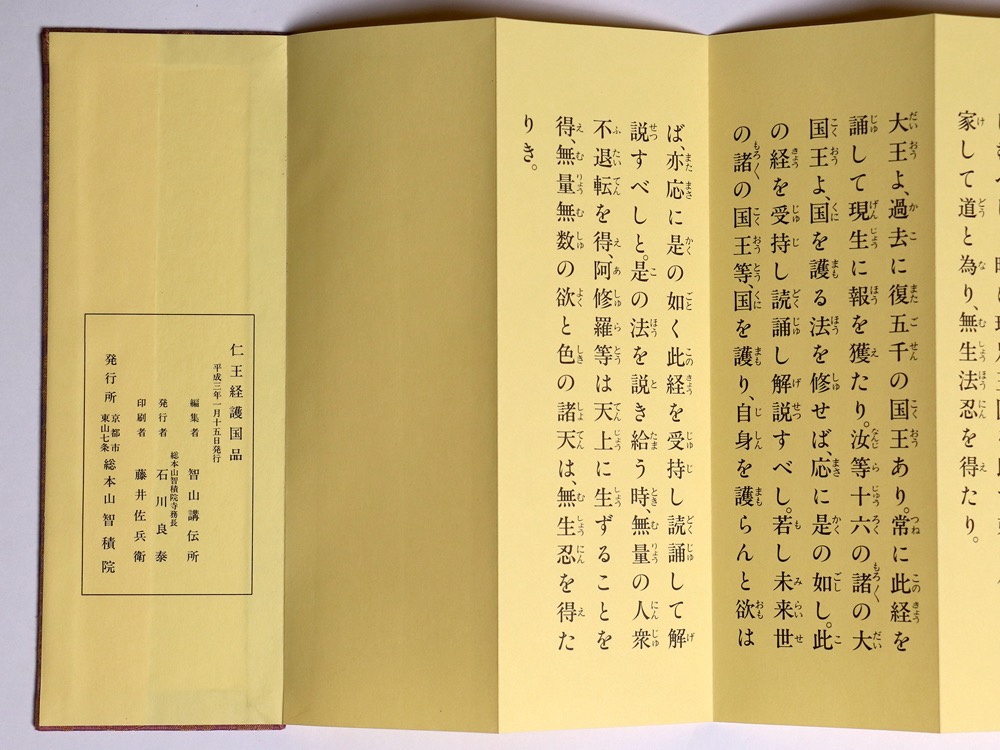 家して道と為り、無生法忍を得たり。
大王よ、過去に復五千の国王あり。常に此経を
誦して現生に報を獲たり。汝等十六の諸の大
国王よ、国を護る法を修せば、応に是の如し。此
の経を受持し読誦し解説すべし。若し未来世
の諸の国王等、国を護り、自身を護らんと欲は
ば、亦応に是の如く此経を受持し読誦して解
説すべしと。是の法を説き給う時、無量の人衆
不退転を得、阿修羅等は天上に生ずることを
得、無量無数の欲と色の諸天は、無生忍を得た
りき。
仁王経護国品
平成三年一月十五日発行
編集者 智山講伝所
総本山智積院寺務長
発行者 石川良泰
印刷者 藤井佐兵衛
発行所 京都市東山七条 総本山智積院